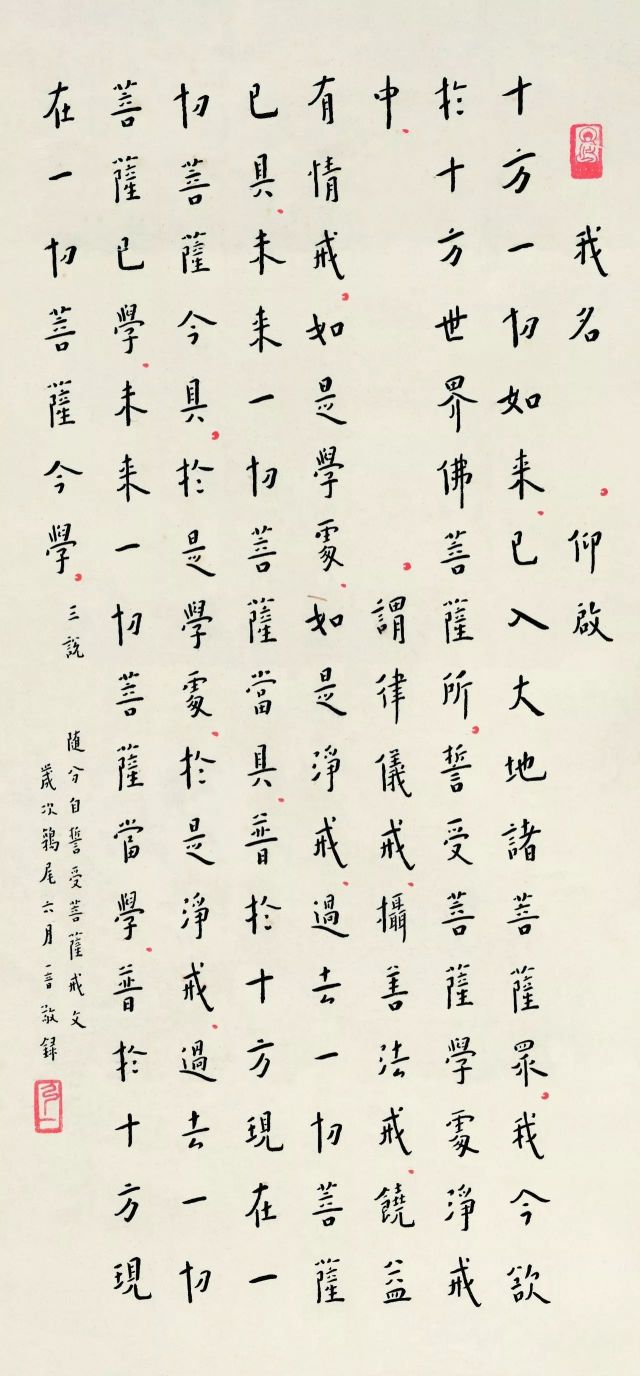 我名 仰啟
十方一切如来已入大地諸菩薩眾我今欲
於十方世界佛菩薩所誓受菩薩學處淨戒
中 謂律儀戒攝善法戒饒益
有情戒如是學處如是淨戒過去一切菩薩
已具未来一切菩薩當具普於十方現在一
切菩薩今具於是學處於是淨戒過去一切
菩薩已學未来一切菩薩當學普於十方現
在一切菩薩今學 三說
隨分自誓受菩薩戒文
歲次鶉尾六月一音敬録